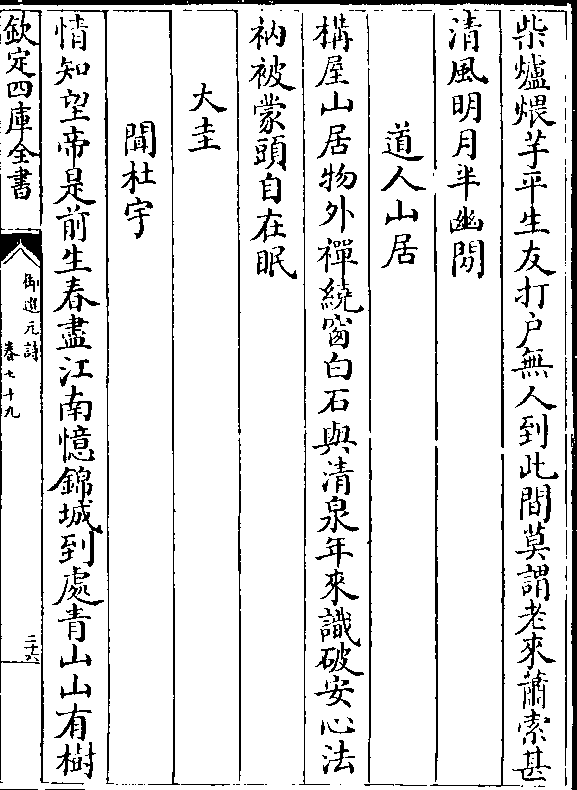 柴爐煨芋平生友打户無人到此間莫謂老來蕭索甚
清風明月半幽閒
道人山居
構屋山居物外禪繞窗白石與清泉年來識破安心法
衲被蒙頭自在眠
大圭
聞杜宇
情知望帝是前生春盡江南憶錦城到處青山山有樹
欽定四庫全書
御選元詩
卷七十九
三十六